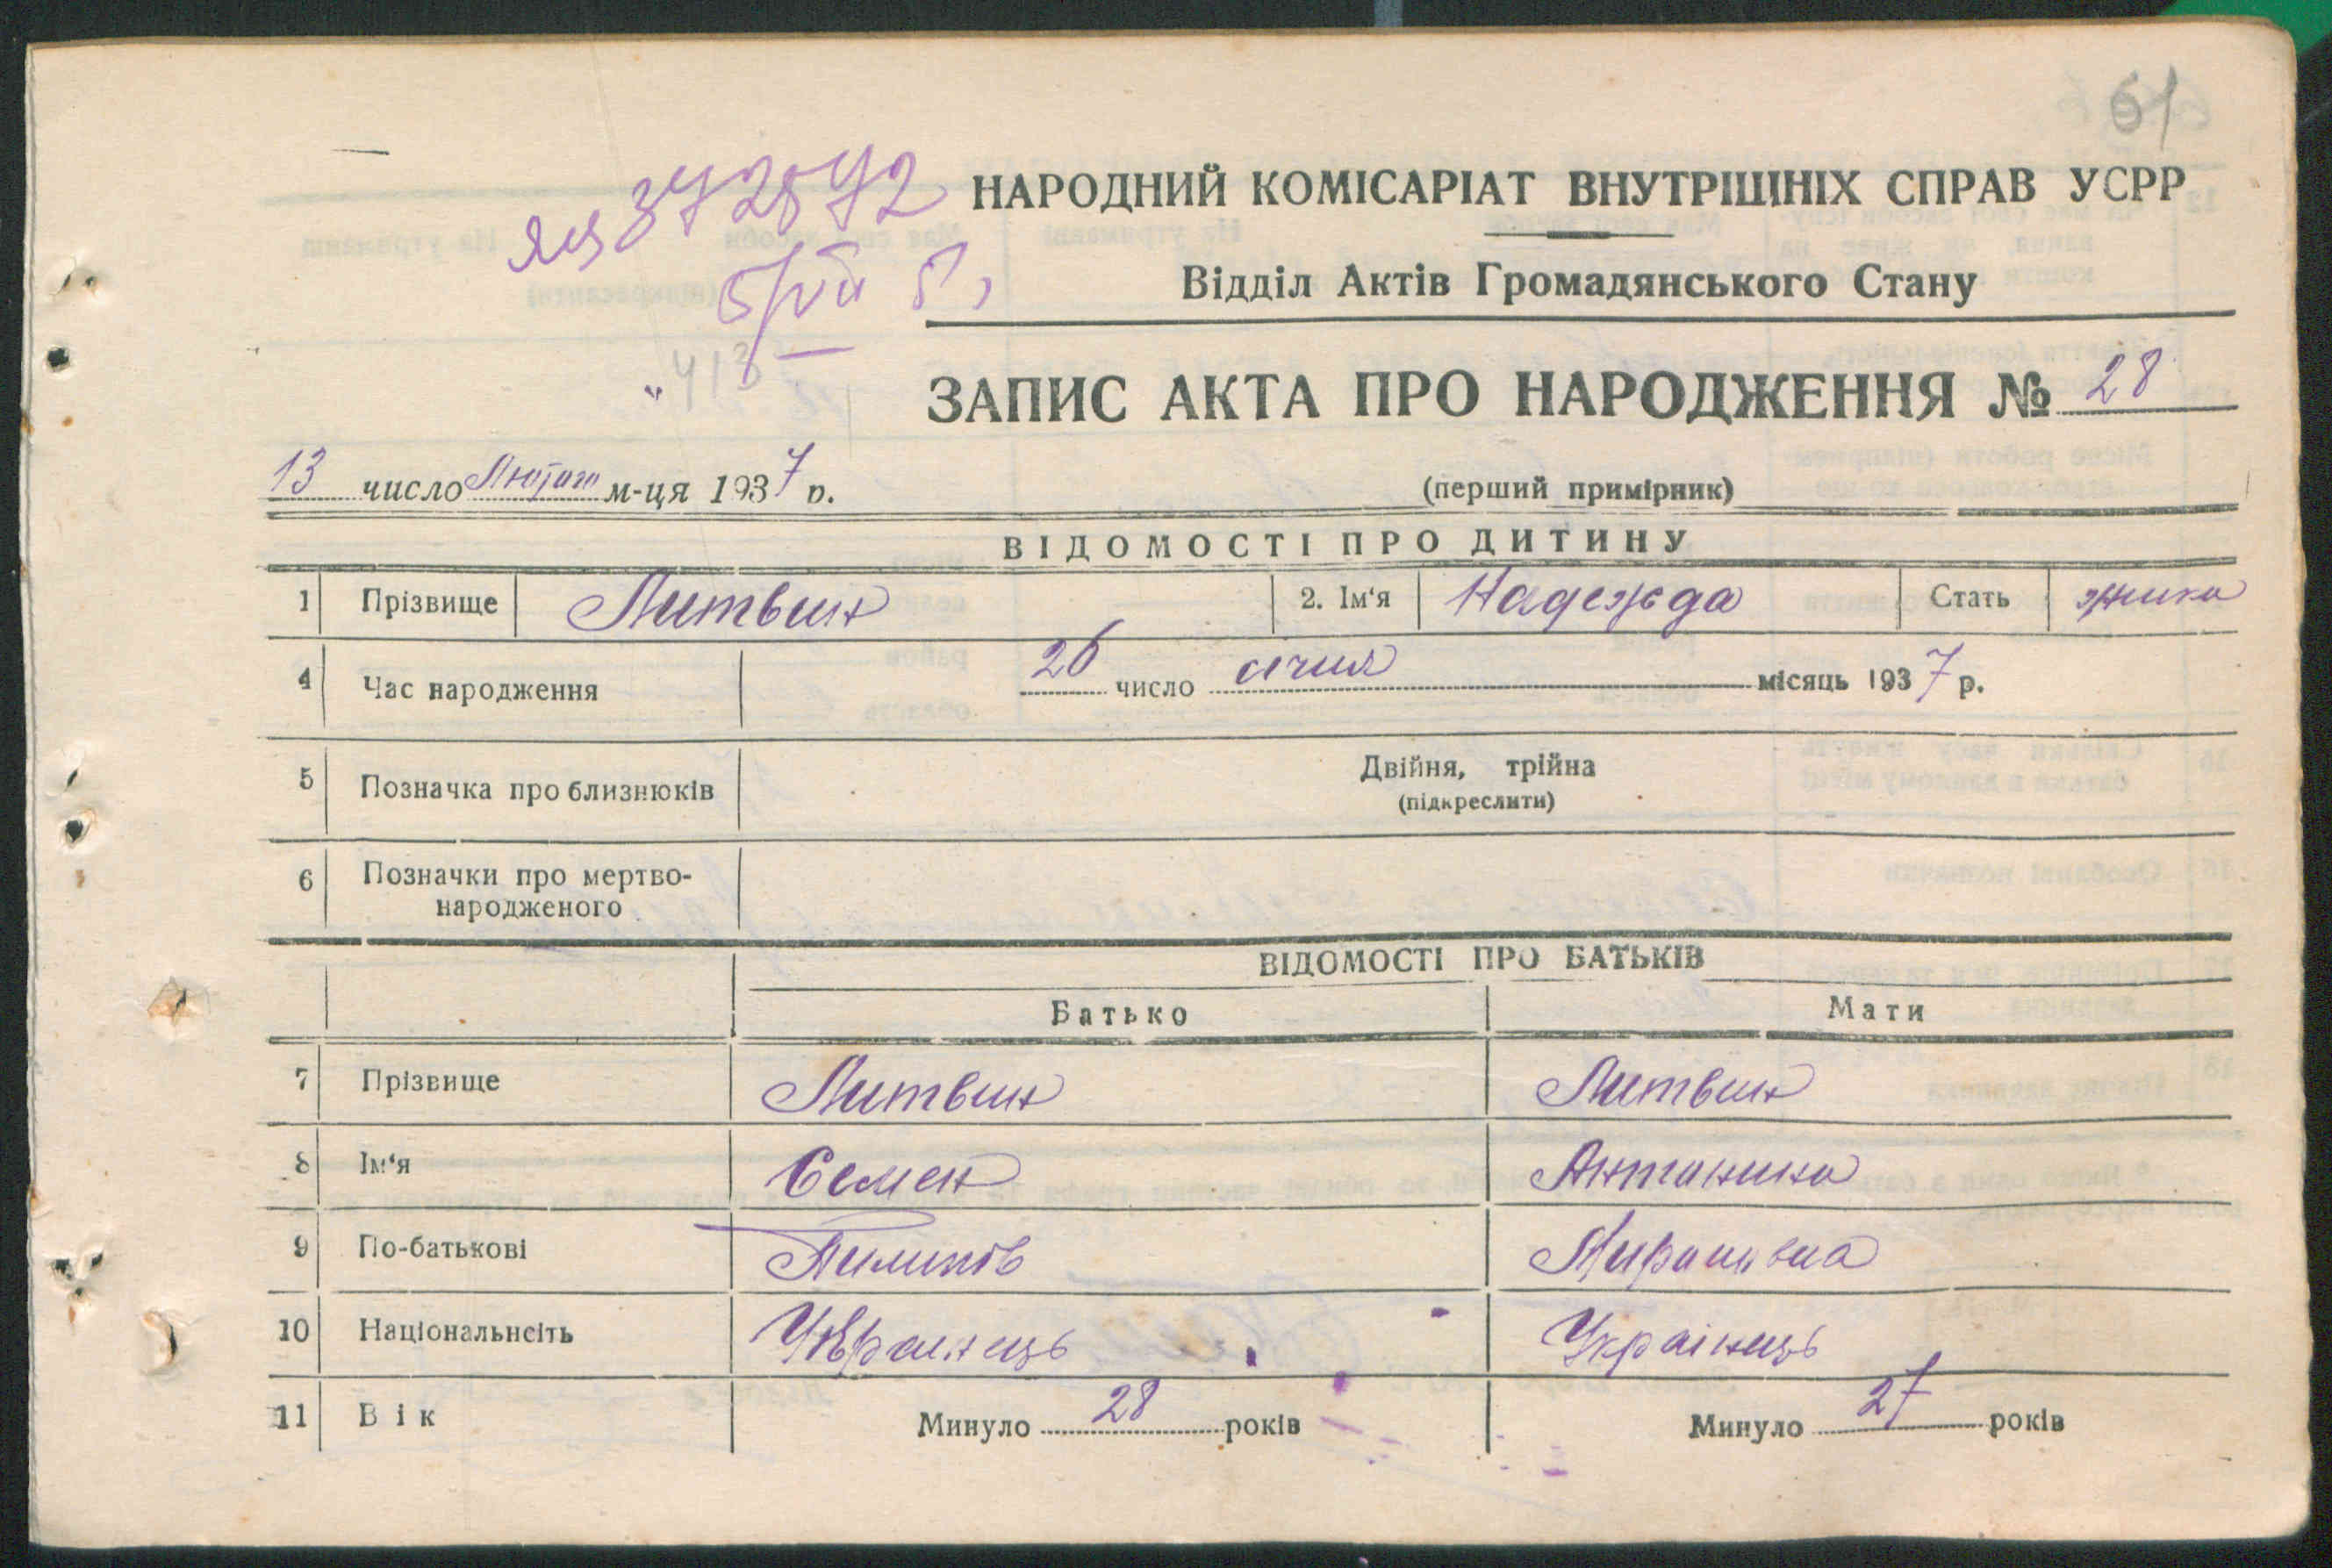 61
НАРОДНИЙ КОМІСАРІАТ ВНУТРІШНІХ СПРАВ УСРР
Відділ Актів Громадянського Стану
413
ЗАПИС АКТА ПРО НАРОДЖЕННЯ № 28
13 число Лютого м-ця 1937 р.
(перший примірник)
ВІДОМОСТІ ПРО ДИТИНУ
1 Прізвище Литвин 2. Ім‘я Надежда Стать жінка
4 Час народження 26 число січня місяць 1937 р.
5 Позначка про близнюків Двійня, трійна
(підкреслити)
6 Позначки про мертво-
народженого
ВІДОМОСТІ ПРО БАТЬКІВ
Батько Мати
7 Прізвище Литвин Литвин
8 Ім‘я Семен Антонина
9 По-батькові Пилипов
10 Національнсіть Українець Українець
11 Вік Минуло 28 років Минуло 27 років